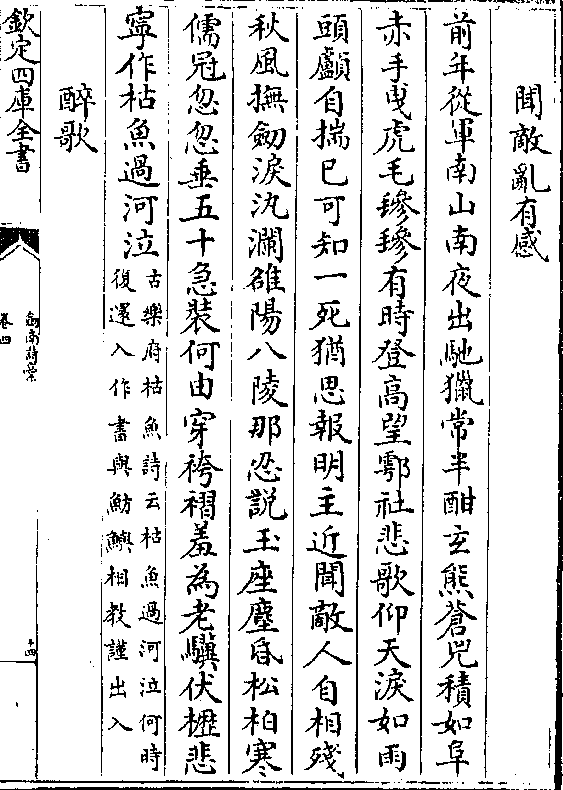 聞敵亂有感
前年從軍南山南夜出馳獵常半酣𤣥熊蒼兕積如阜
赤手曵虎毛毿毿有時登髙望鄠社悲歌仰天淚如雨
頭顱自揣已可知一死猶思報明主近聞敵人自相殘
秋風撫劒淚汍瀾雒陽八陵那忍說玉座塵昏松栢寒
儒冠忽忽垂五十急裝何由穿袴褶羞為老驥伏櫪悲
寧作枯魚過河泣古樂府枯魚詩云枯魚過河泣何時
復還入作書與魴鱮相教謹出入
醉歌
欽定四庫全書
劒南詩藁
卷四
十四